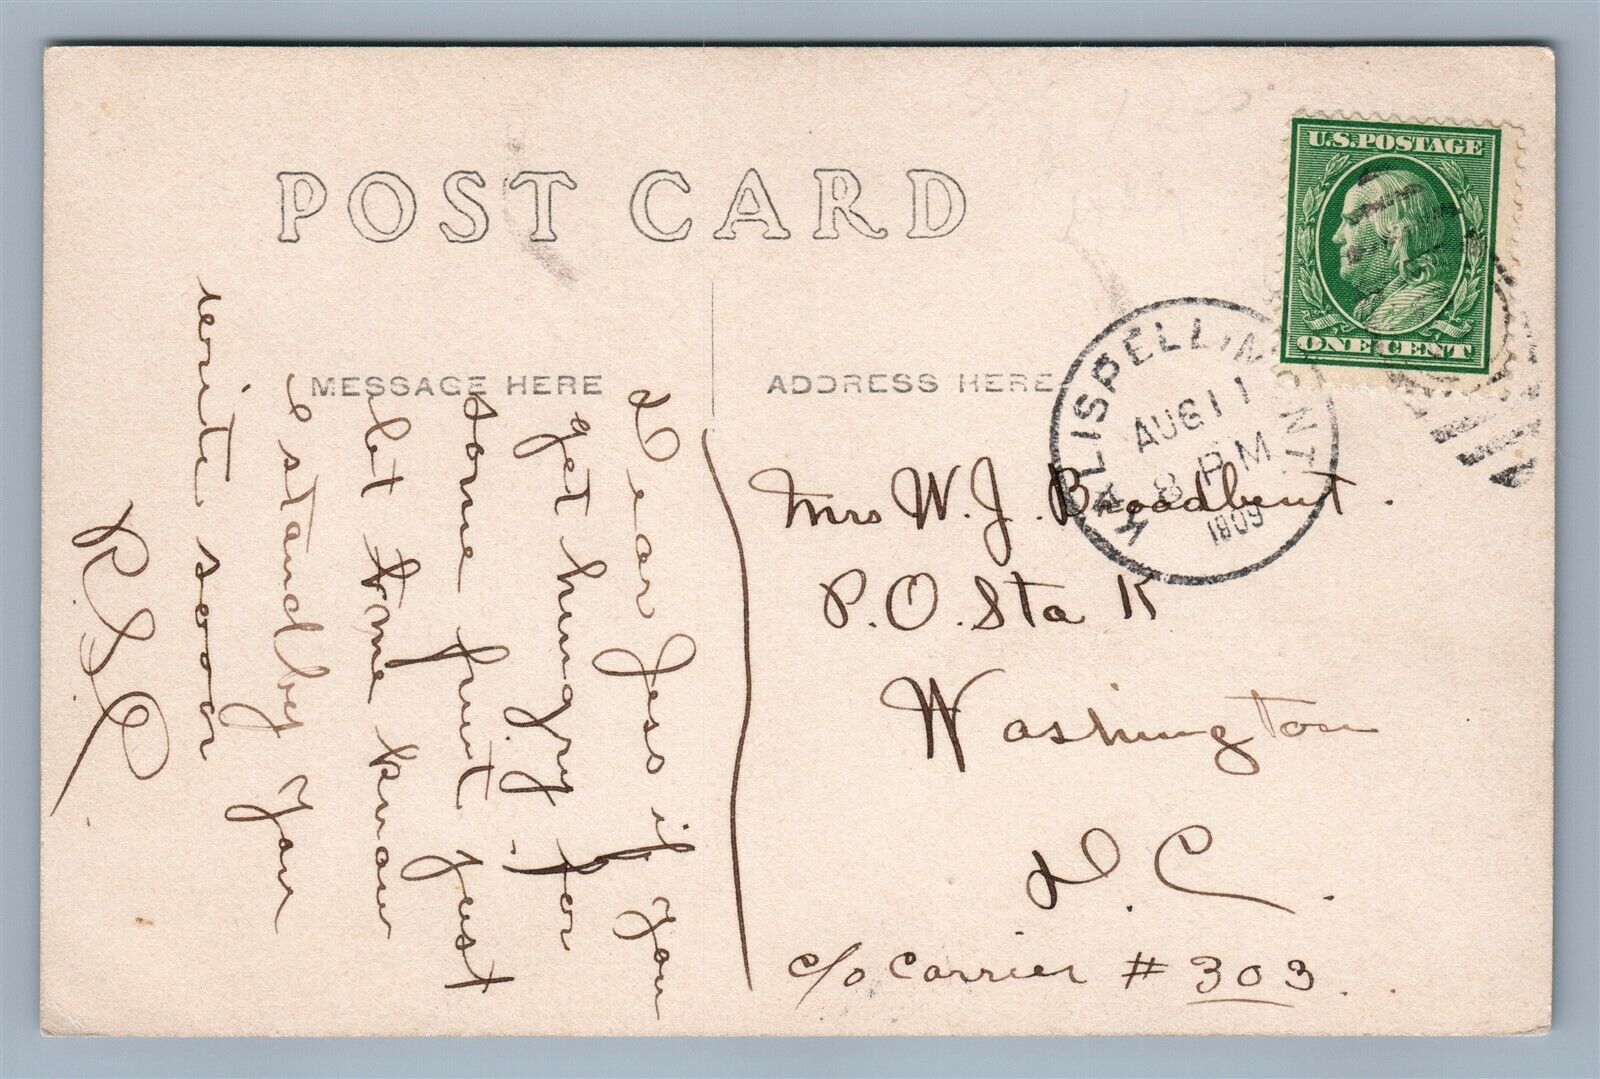 POST CARD
MESSAGE HERE
ADDRESS HERE
U.S. POSTAGE
ONE CENT
KALISPELL, MONT.
AUG 11
8 PM
1909
Dear Jess if you
get hungry for
some fruit just
let me know
& stand by you
write soon
R.S.P.
Mrs W. J. Broadbent.
P.O. Sta K
Washington
D.C.
c/o Carrier # 303.